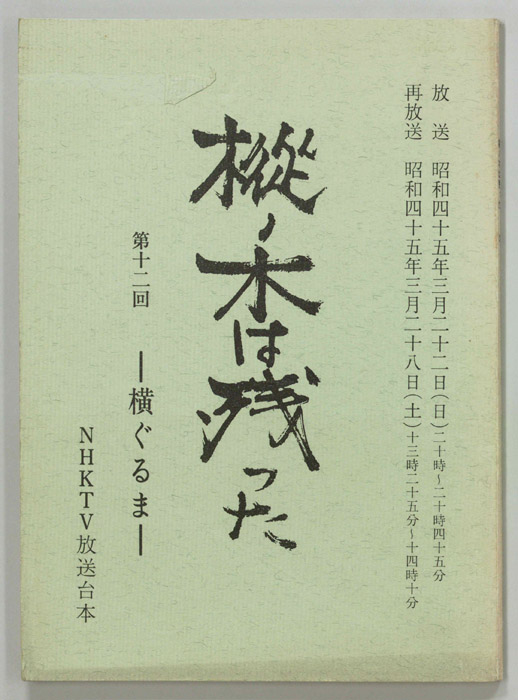 放送　昭和四十五年三月二十二日(日)二十時~二十時四十五分
再放送　昭和四十五年三月二十八日(土)十三時二十五分~十四時十分
樅ノ木は残った
第十二回　―横ぐるま―
NHKTV放送台本